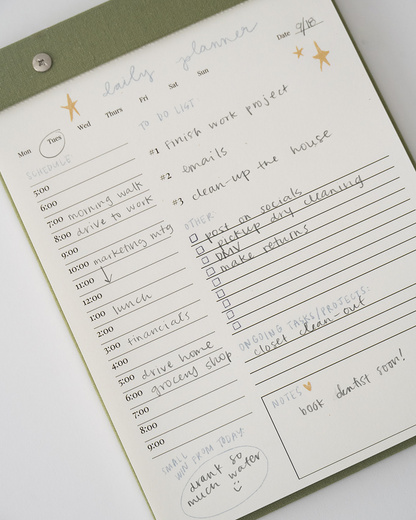 daily planner
Date 9/18
Mon Tues Wed Thurs Fri Sat Sun
SCHEDULE
5:00
6:00
7:00 morning walk
8:00 drive to work
9:00
10:00 marketing mtg
11:00
12:00
1:00 lunch
2:00
3:00 financials
4:00
5:00 drive home
6:00 grocery shop
7:00
8:00
9:00
SMALL
WIN FROM TODAY
drank so
much water
TO DO LIST:
#1 finish work project
#2 emails
#3 clean-up the house
OTHER:
post on socials
pickup dry cleaning
DMV
make returns
ONGOING TASKS/PROJECTS:
closet clean-out
NOTES
book dentist soon!